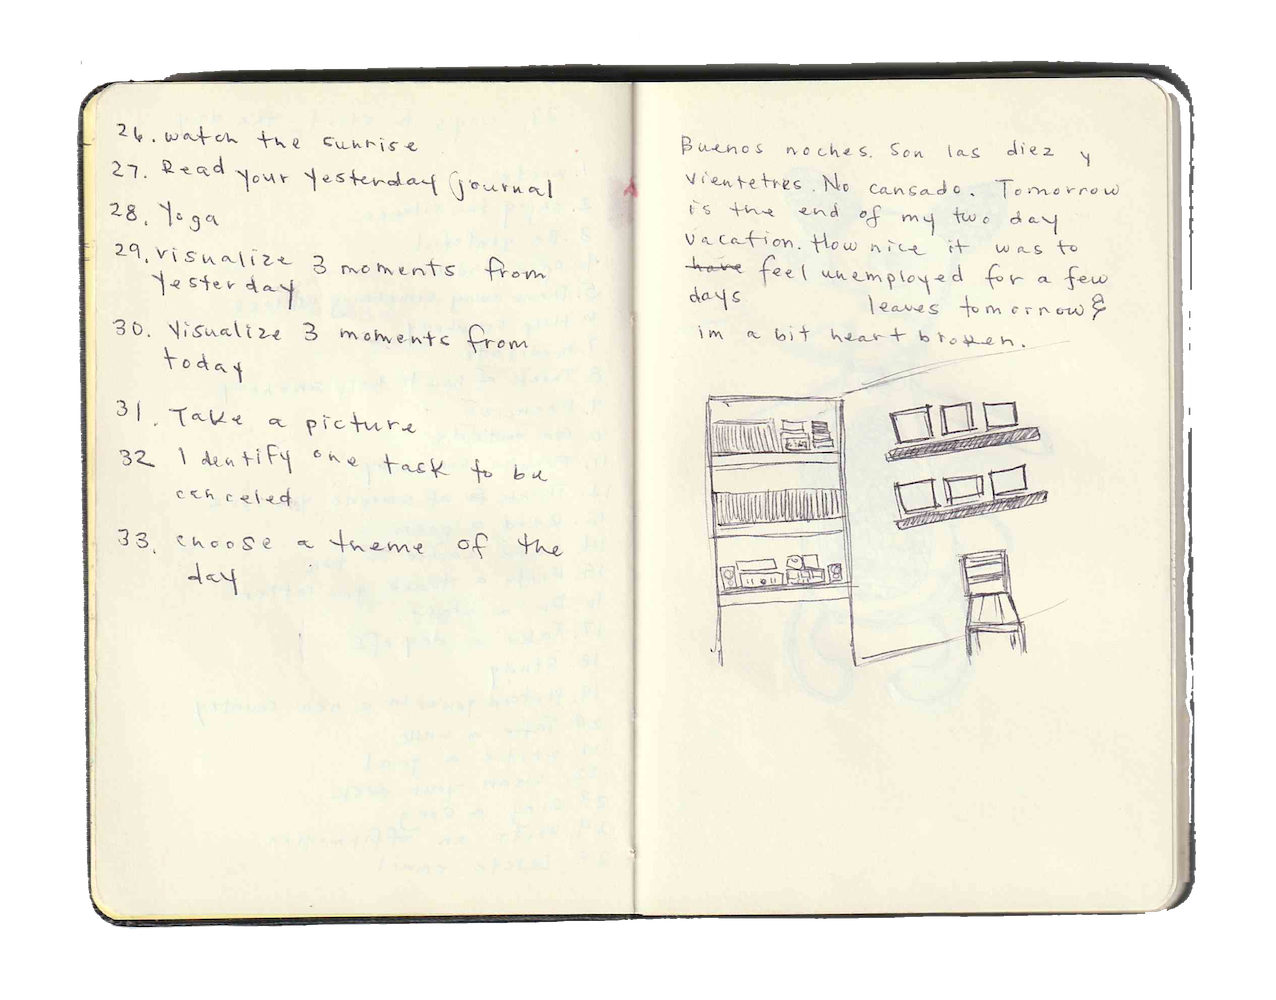 26. watch the sunrise
27. Read your yesterday journal
28. Yoga
29. visualize 3 moments from
yesterday
30. visualize 3 moments from
today
31. Take a picture
32 Identify one task to be
canceled
33. choose a theme of the
day
Buenos noches. Son las diez y
vientetres. No cansado. Tomorrow
is the end of my two day
vacation. How nice it was to
have feel unemployed for a few
days leaves tomorrow &
im a bit heart broken.